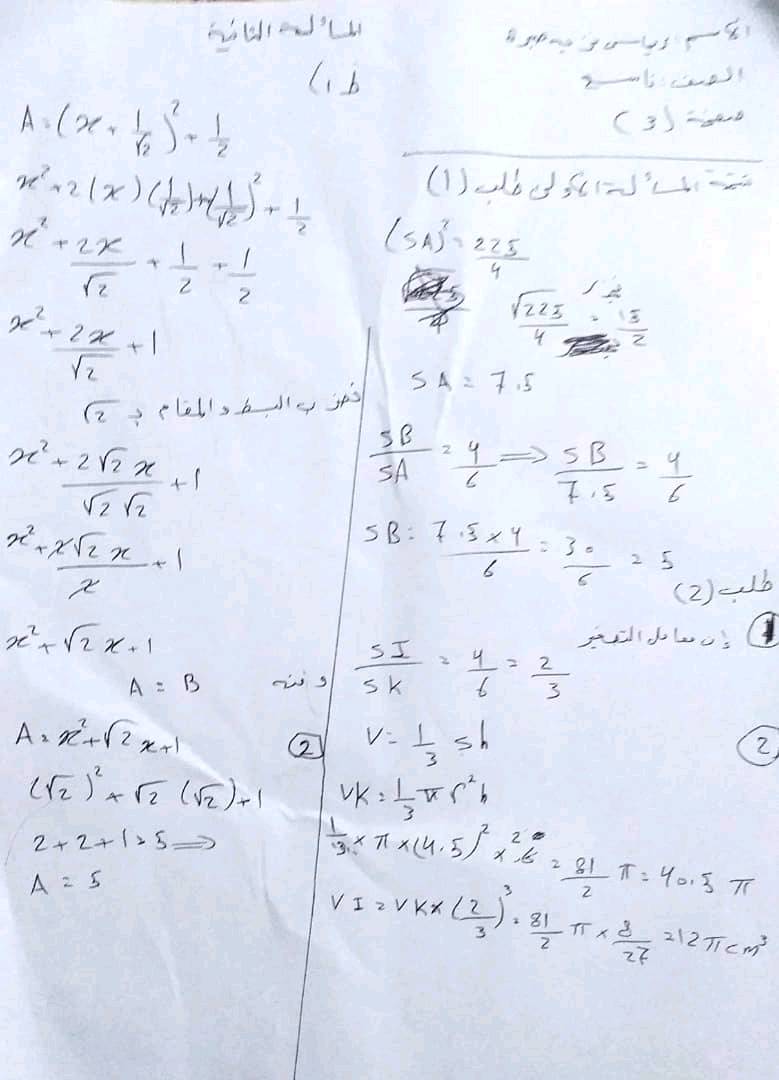 الصف: تاسع
صفحة (3)
تتمة المسألة الأولى طلب (1)
(SA)² = 225/4
√225/4 = 15/2
SA = 7.5
SB/SA = 4/6 ⟹ SB/7.5 = 4/6
SB = 7.5 × 4/6 = 30/6 = 5
طلب (2)
1 إن معامل التصغير
SI/SK = 4/6 = 2/3
2 V = 1/3 Sh
VK = 1/3 π r² h
1/3 × π × (4.5)² × 6 2 = 81/2 π = 40.5 π
VI = VK × (2/3)³ = 81/2 π × 8/27 = 12 π cm³
المسألة الثانية
ط 1)
A = (x + 1/√2)² + 1/2
x² + 2(x)(1/√2) + (1/√2)² + 1/2
x² + 2x/√2 + 1/2 + 1/2
x² + 2x/√2 + 1
نضرب البسط والمقام بـ √2
x² + 2√2 x/√2 √2 + 1
x² + 2√2 x/2 + 1
x² + √2 x + 1
ومنه A = B
2 A = x² + √2 x + 1
(√2)² + √2 (√2) + 1
2 + 2 + 1 = 5 ⟹
A = 5